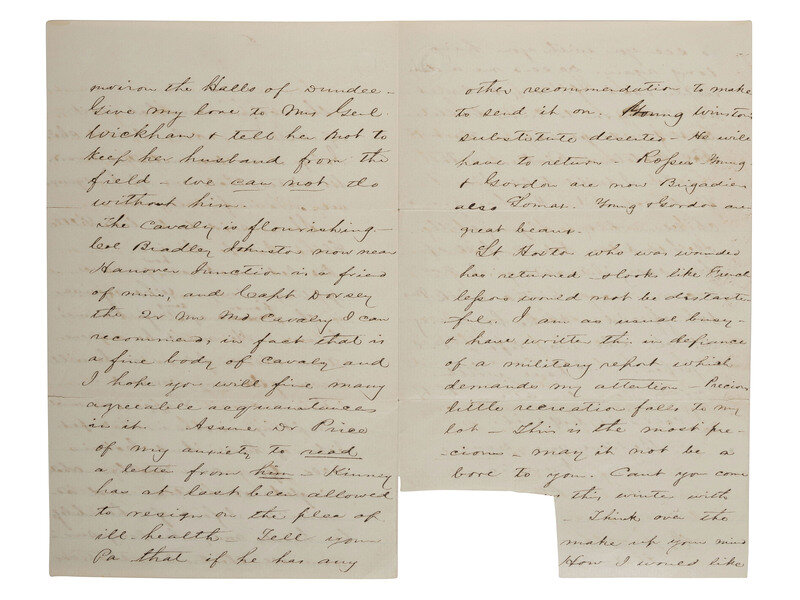 the Halls of Dundee -
Give my love to Mrs Genl
Wickham & tell her not to
keep her husband from the
field - we can not do
without him.
The Cavalry is flourishing -
Col Bradley Johnston now near
Hanover Junction is a friend
of mine, and Capt Dorsey
the Md Cavalry I can
recommend, in fact that is
a fine body of cavaly and
I hope you will find many
agreeable acquaintances
in it. Assure Dr Price
of my anxiety to read
a letter from him - Kinney
has at last been allowed
to resign on the plea of
ill-health Tell your
Pa that if he has any
other recommendation to make
to send it on. Young Winston
substitute deserted - He will
have to return - Rosser Young
& Gordon are now Brigadiers
also Lomax. Young & Gordon are
great beaux.
Lt who was wounded
has returned - & looks like French
lessons would not be distaste-
-ful. I am as usual busy -
& have written this in defiance
of a military report which
demands my attention - Precious
little recreation falls to my
lot - This is the most pre-
-cious - may it not be a
bore to you. Cant you come
this winter with
- Think over the
make up your mind
How I would like